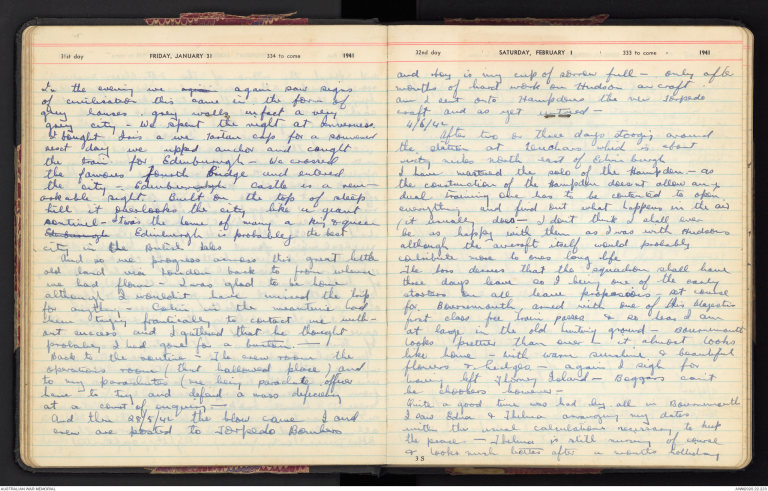 31st day FRIDAY, JANUARY 31 334 to come 1941
In the evening we again again saw signs
of civilisation this came in the form of
grey houses, grey walls, in fact a very
grey city - We spent the night at Inverness
& bought Iris a wee Tartan cap for a souvenir
next day we upped anchor and caught
the train for Edinburough - We crossed
the famous Fourth Bridge and entered
the city - Edinburough Castle is a rem-
arkable sight. Built on the top of steep
hill it overlooks the city like a giant
sentinel - It was the home of many a King & queen
Edinburough Edinburgh is probably the best
city in the British Isles
And so we progress across this great little
old land via London back to from whence
we had flown - I was glad to be home
although I wouldn't have missed the trip
for anything - in the meantime had
been trying frantically to contact me with-
out success and I gathered that he thought
probably I had gone for a burton. —
Back to the routine - The crew room the
operations room (that hallowed place) and
to my parachutes (me being parachute officer
have to try and defend a mass deficiency
at a court of enquiry —
And then 28/5/42 the blow came I and
crew are posted to Torpedo Bombers
32nd day SATURDAY, FEBRUARY 1 333 to come 1941
and so is my cup of sorrow full - only after
months of hard work on Hudson aircraft
am I sent onto Hampdens the new Torpedo
craft and as yet untried -
4/6/42
After two or three days stooging around
the station at Leuchars which is about
sixty miles north east of Edinburgh
I have mastered the solo of the Hampden - as
the construction of the Hampden doesnt allow any
dual training one has to be contented to open
everything and find out what happens in the air
it usually does - I don't think I shall ever
be as happy with them as I was with Hudsons
although the aircraft itself would probably
contribute more to ones long life
The boss deems that the squadron shall have
three days leave so I being one of the early
starters on all leave propositions, set course
for Bournemouth armed with one of His Majesties
first class free train passes & so here I am
at large in the old hunting ground - Bournemouth
looks prettier than ever - it almost looks
like home - with warm sunshine & beautiful
flowers & hedges - again I sigh for
having left Thorney Island - Beggars can't
be choosers however -
Quite a good time was had by all in Bournemouth
I saw Edna & Thelma arranging my dates
with the usual calculations necessary to keep
the peace - Thelma is still nursing of course
& looks much better after a months holiday
3 S
AUSTRALIAN WAR MEMORIAL